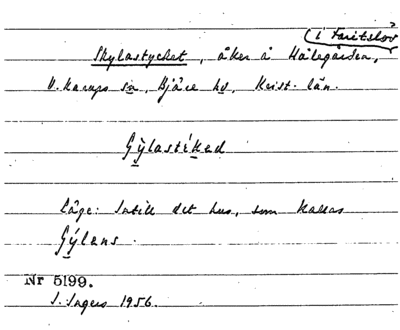 (i Faritslöv
Skylastycket, åker å Hålegården,
V. Karups sn, Bjäre hd, Krist. län.
Gýlastíked
Läge: Intill det hus, som kallas
Gýlens.
Nr 5199.
I. Ingers 1956.